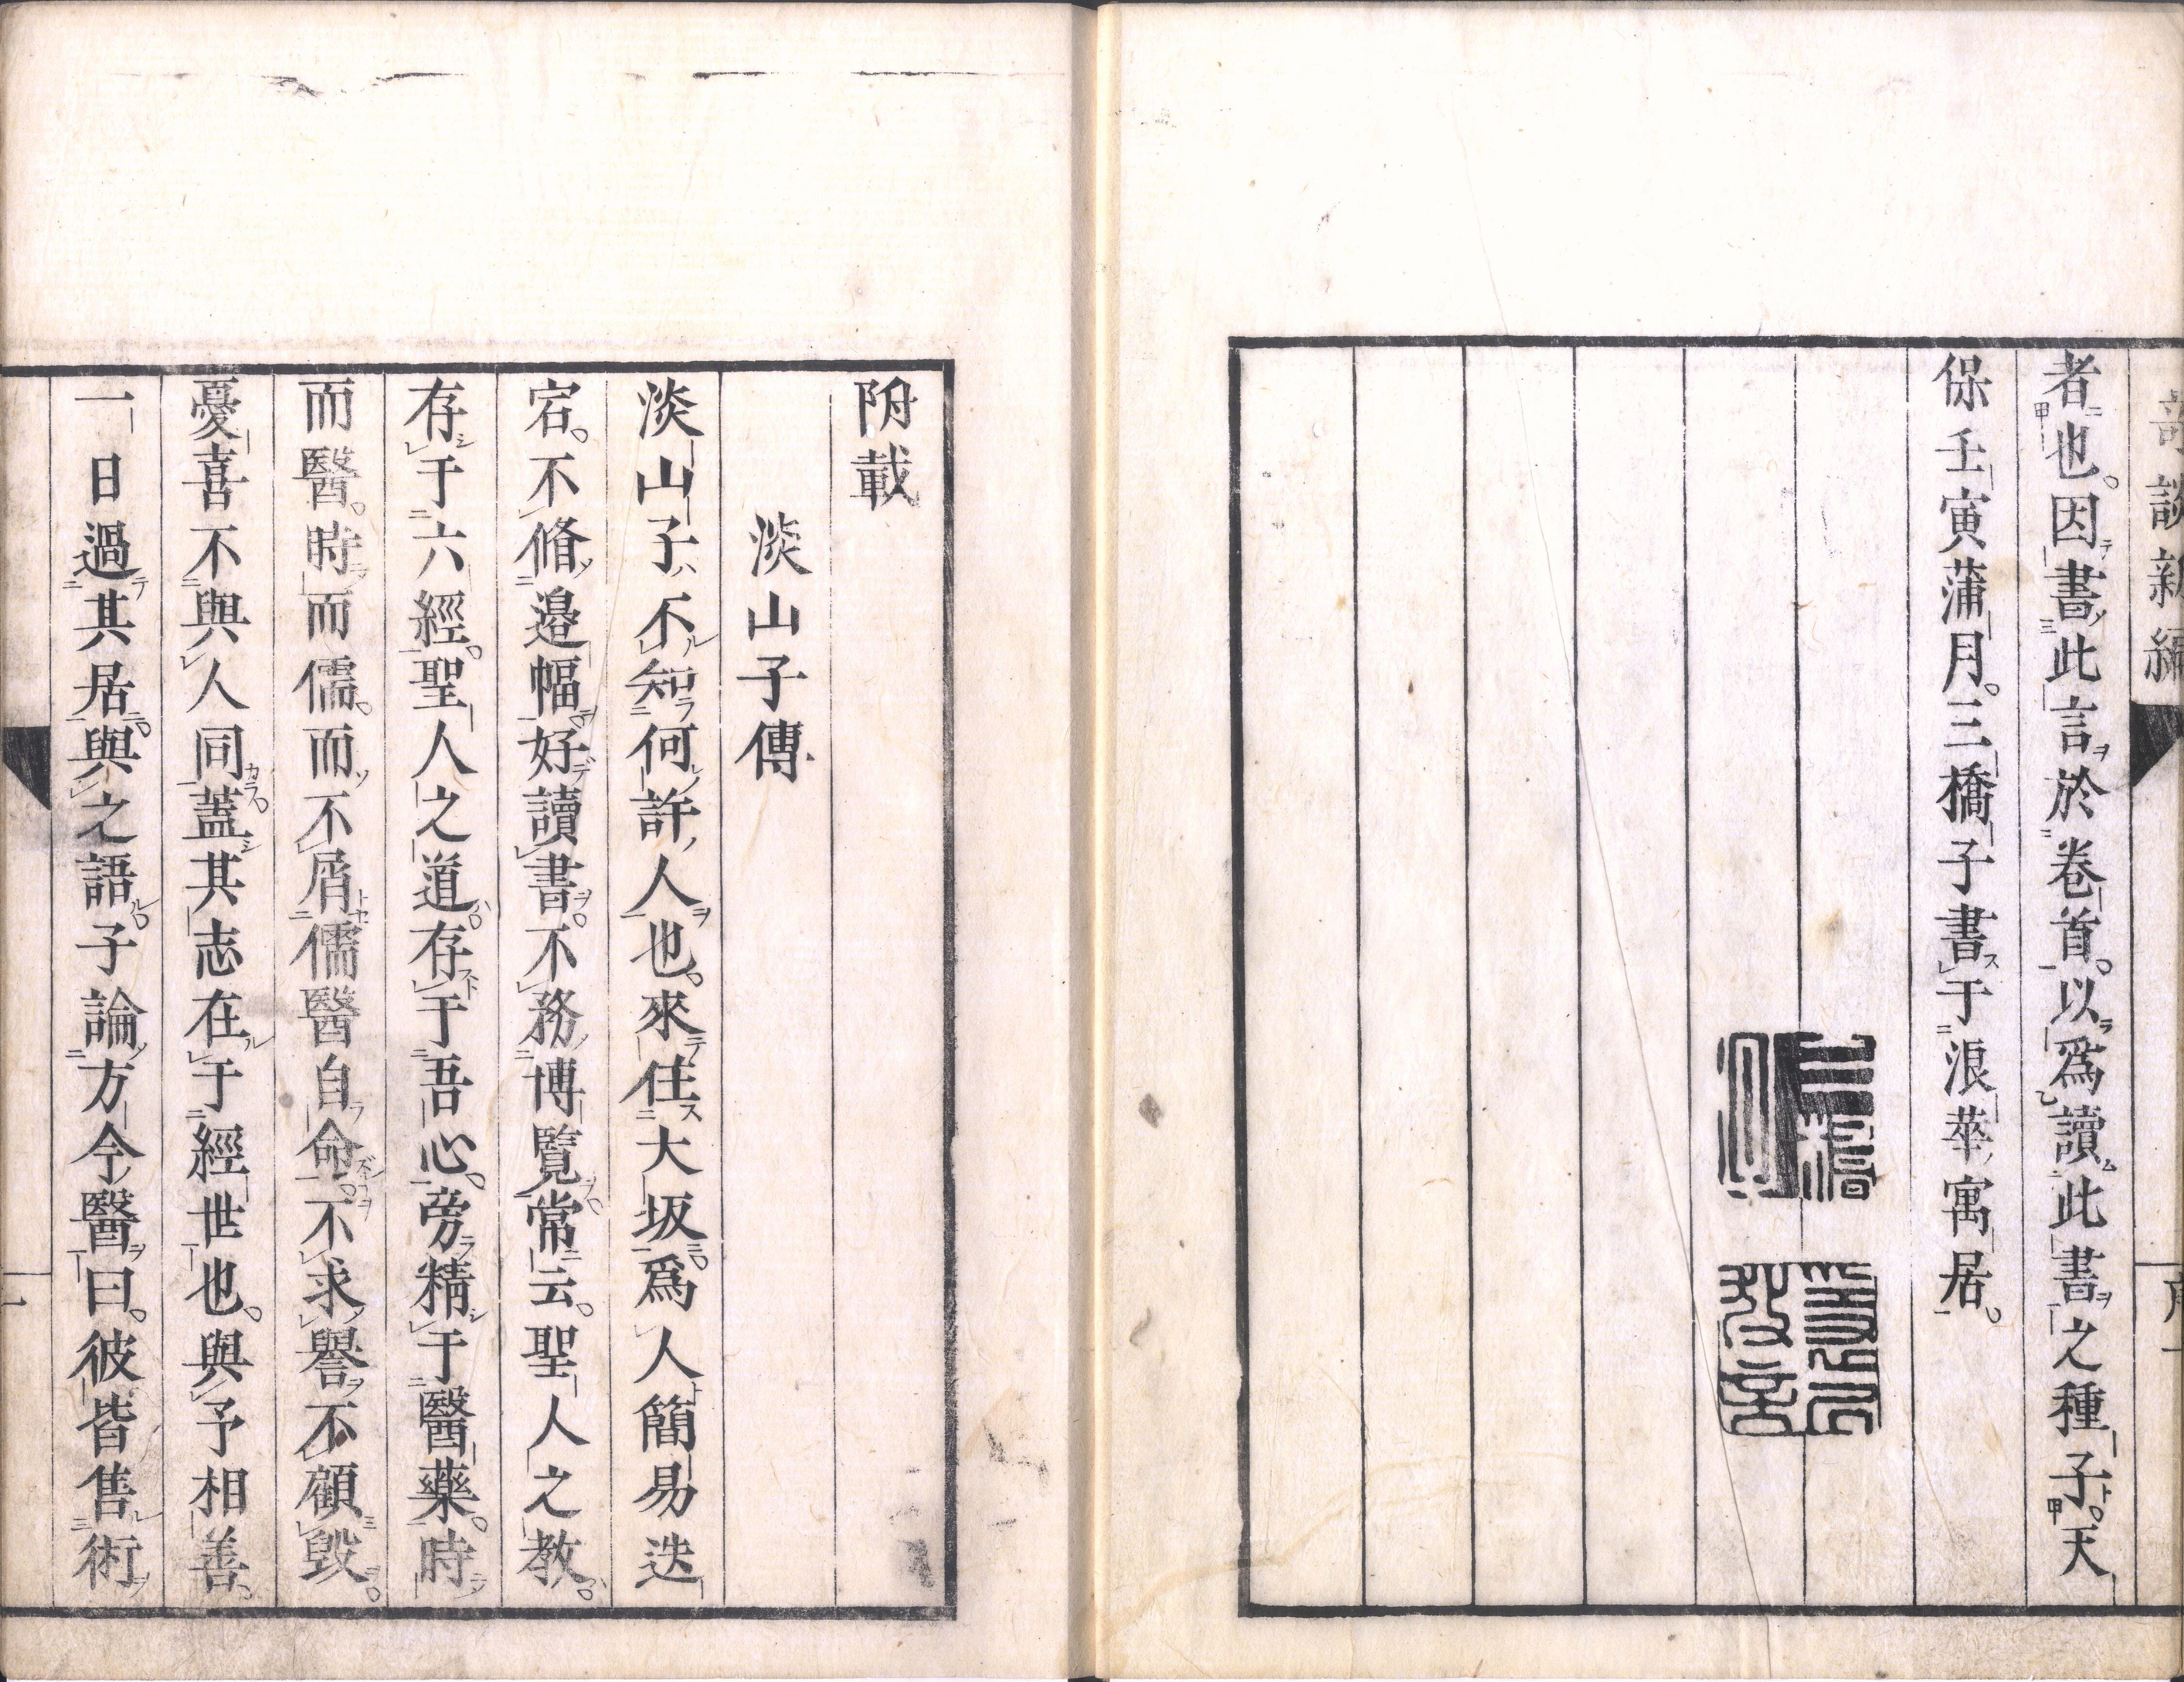 奇談新編
者也。因書此言於卷首。以爲讀此書之種子。天
保壬寅蒲月。三橋子書于浪華寓居。
附載
淡山子傳
淡山子不知何許人也。來住大坂。爲人簡易迭
宕。不脩邉幅。好讀書。不務博覽。常云。聖人之教。
存于六經。聖人之道。存于吾心。旁精于醫藥。時
而醫。時而儒。而不屑儒醫自命。不求譽。不顧毀。
憂喜不與人同。蓋其志在于經世也。與予相善。
一日過其居。與之語。子論方今醫曰。彼皆售術